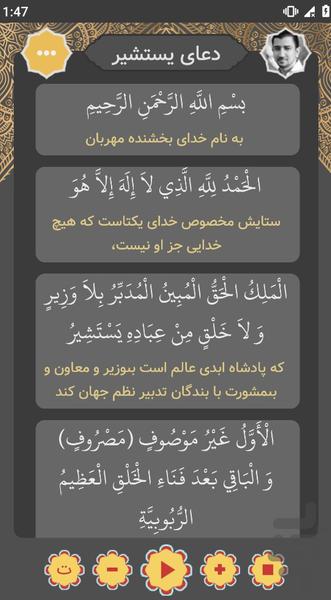 1:47
دعای یستشیر
بِسْمِ اللَّهِ الرَّحْمَنِ الرَّحِيمِ
به نام خدای بخشنده مهربان
الْحَمْدُ لِلَّهِ الَّذِي لاَ إِلَهَ إِلاَّ هُوَ
ستایش مخصوص خدای یکتاست که هیچ
خدایی جز او نیست،
الْمَلِكُ الْحَقُّ الْمُبِينُ الْمُدَبِّرُ بِلاَ وَزِيرٍ
وَ لاَ خَلْقٍ مِنْ عِبَادِهِ يَسْتَشِيرُ
که پادشاه ابدی عالم است بی‌وزیر و معاون و
بی‌مشورت با بندگان تدبیر نظم جهان کند
الْأَوَّلُ غَيْرُ مَوْصُوفٍ (مَصْرُوفٍ)
وَ الْبَاقِي بَعْدَ فَنَاءِ الْخَلْقِ الْعَظِيمُ
الرُّبُوبِيَّةِ
ت